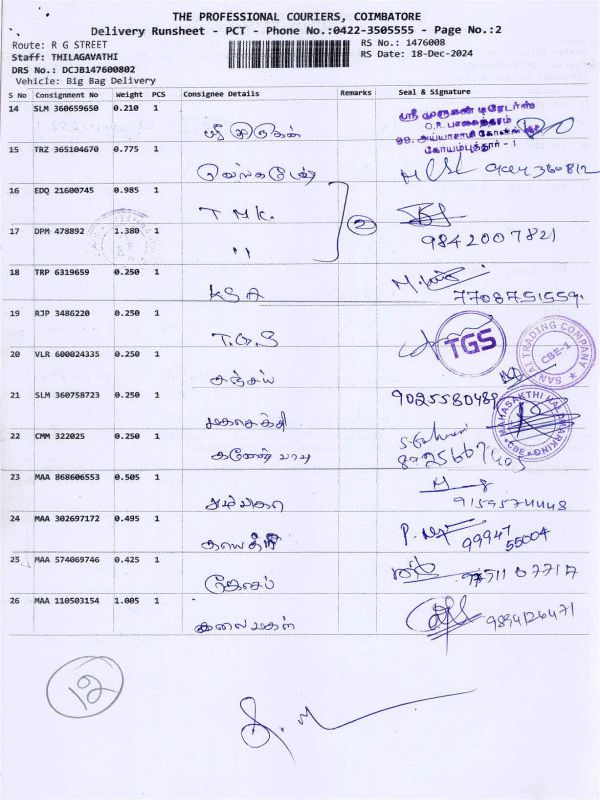 THE PROFESSIONAL COURIERS, COIMBATORE
Delivery Runsheet - PCT - Phone No.:0422-3505555 - Page No.:2
Route: R G STREET
RS No.: 1476008
Staff: THILAGAVATHI
RS Date: 18-Dec-2024
DRS No.: DCJB147600802
Vehicle: Big Bag Delivery
S No Consignment No Weight PCS Consignee Details Remarks Seal & Signature
14 SLM 360659650 0.210 1
ஸ்ரீ முருகன்
ஸ்ரீ முருகன் டிரேடர்ஸ்
கோயம்புத்தூர் - 1
15 TRZ 365104670 0.775 1
16 EDQ 21600745 0.985 1
T M K.
2
17 DPM 478892 1.380 1
"
9842007821
18 TRP 6319659 0.250 1
KSA
7708751559
19 RJP 3486220 0.250 1
T.G.S
TGS
20 VLR 600024335 0.250 1
சஞ்சய்
TRADING COMPANY
CBE-1
21 SLM 360758723 0.250 1
மகாசக்தி
9025580489
MAHASAKTHI HALLMARKING
CBE
22 CMM 322025 0.250 1
23 MAA 868606553 0.505 1
24 MAA 302697172 0.495 1
99947
55004
25 MAA 574069746 0.425 1
26 MAA 110503154 1.005 1
கலைமகள்
9894126471
12